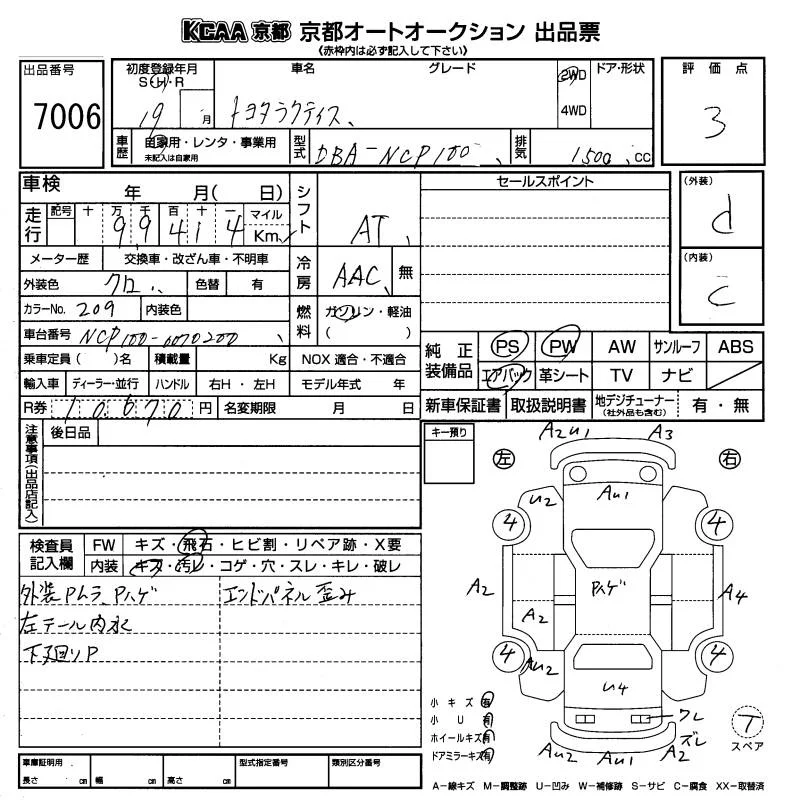 KCAA 京都 京都オートオークション 出品票
《赤枠内は必ず記入して下さい》
出品番号
7006
初度登録年月
S・H・R
19 月
車名
グレード
トヨタラクティス、
2WD
4WD
ドア・形状
評価点
3
車歴
自家用・レンタ・事業用
未記入は自家用
型式
DBA-NCP100、
排気
1500、cc
車検
年 月( 日)
シフト
AT、
セールスポイント
(外装)
d
(内装)
C
走行
記号 十 万 千 百 十 一
9 9 4 1 4
マイル
Km
メーター歴
交換車・改ざん車・不明車
冷房
AAC、
無
外装色
クロ、
色替
有
カラーNo. 209
内装色
燃料
ガソリン・軽油
( )
車台番号
NCP100-0070200、
純正装備品
PS PW AW サンルーフ ABS
エアバック 革シート TV ナビ
乗車定員( )名
積載量
Kg
NOX 適合・不適合
輸入車
ディーラー・並行
ハンドル
右H・左H
モデル年式 年
R券 10,670 円
名変期限 月 日
新車保証書
取扱説明書
地デジチューナー
(社外品も含む)
有・無
注意事項(出品店記入)
後日品
キー預り
左
右
A2U1
A3
AU1
U2
4
4
A2
A2
Pハゲ
A4
4
4
AU2
U4
ワレ
ズレ
AU2
AU1
A2
T
スペア
検査員記入欄
FW キズ・飛石・ヒビ割・リペア跡・X要
内装 キズ・汚レ・コゲ・穴・スレ・キレ・破レ
外装Pムラ、Pハゲ
エンドパネル歪み
左テール内水
下廻りP
小キズ有
小U有
ホイールキズ有
ドアミラーキズ有
車庫証明用
長さ cm 幅 cm 高さ cm
型式指定番号
類別区分番号
A-線キズ M-調整跡 U-凹み W-補修跡 S-サビ C-腐食 XX-取替済